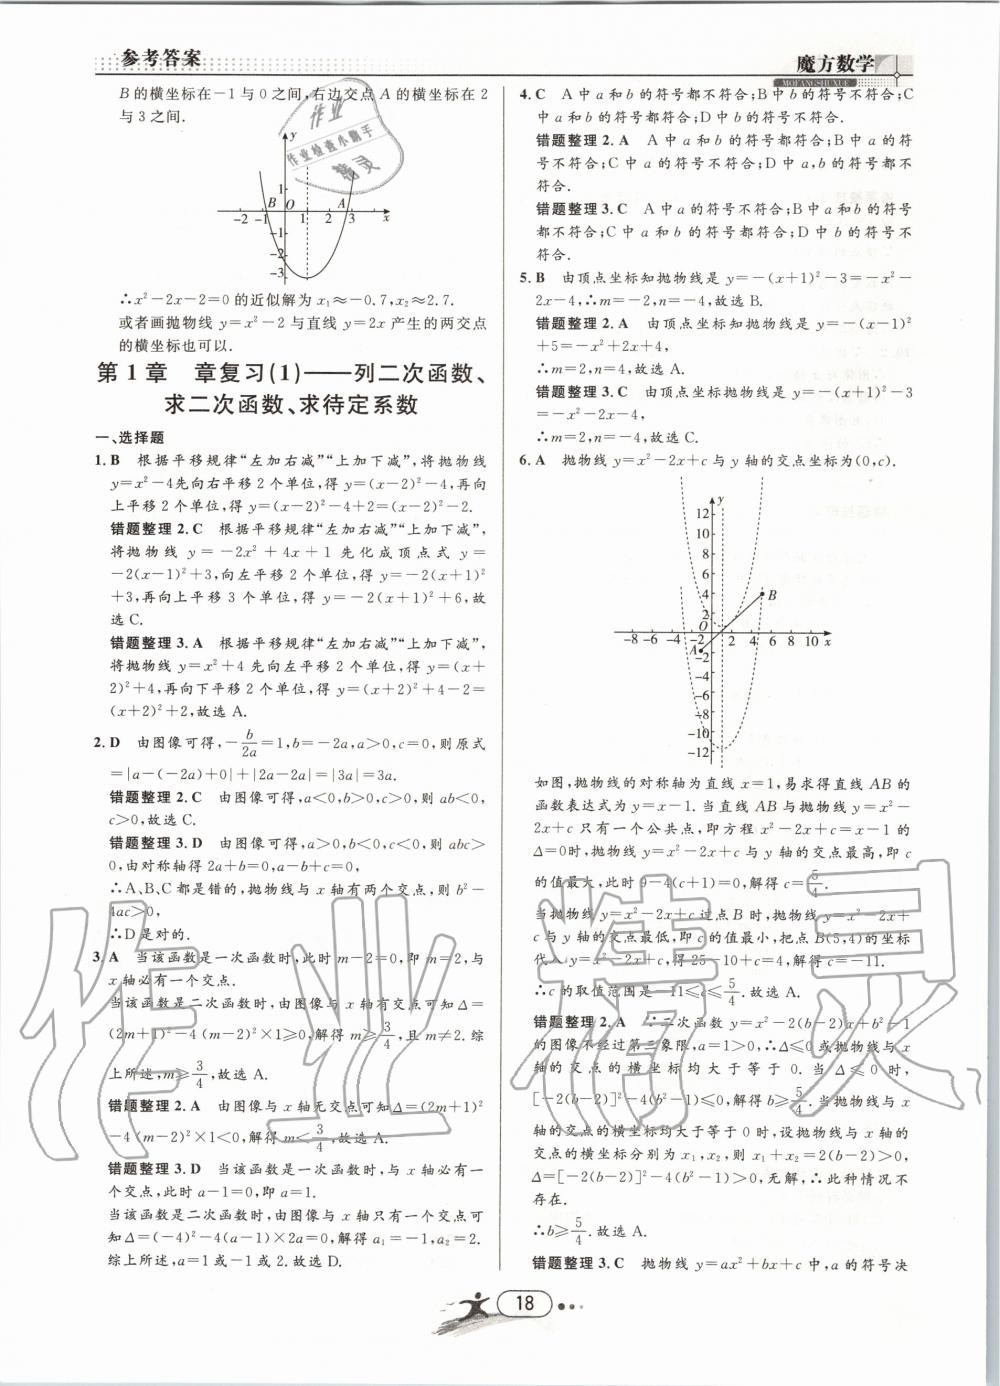 参考答案
魔方数学
MOFANGSHUXUE
B的横坐标在-1与0之间,右边交点A的横坐标在2
与3之间.
y
1
B O A
-2 -1 1 2 3 x
-1
-2
-3
∴x²-2x-2=0的近似解为x₁≈-0.7,x₂≈2.7.
或者画抛物线y=x²-2与直线y=2x产生的两交点
的横坐标也可以.
第1章 章复习(1)——列二次函数、
求二次函数、求待定系数
一、选择题
1. B 根据平移规律“左加右减”“上加下减”,将抛物线
y=x²-4先向右平移2个单位,得y=(x-2)²-4,再向
上平移2个单位,得y=(x-2)²-4+2=(x-2)²-2.
错题整理2. C 根据平移规律“左加右减”“上加下减”,
将抛物线y=-2x²+4x+1先化成顶点式y=
-2(x-1)²+3,向左平移2个单位,得y=-2(x+1)²
+3,再向上平移3个单位,得y=-2(x+1)²+6,故
选C.
错题整理3. A 根据平移规律“左加右减”“上加下减”,
将抛物线y=x²+4先向左平移2个单位,得y=(x+
2)²+4,再向下平移2个单位,得y=(x+2)²+4-2=
(x+2)²+2,故选A.
2. D 由图像可得,-b/2a=1,b=-2a,a>0,c=0,则原式
=|a-(-2a)+0|+|2a-2a|=|3a|=3a.
错题整理2. C 由图像可得,a<0,b>0,c>0,则ab<0,
c>0,故选C.
错题整理3. D 由图像可得,a>0,b<0,c<0,则abc>
0,由对称轴得2a+b=0,a-b+c=0,
∴A、B、C都是错的,抛物线与x轴有两个交点,则b²-
4ac>0,
∴D是对的.
3. A 当该函数是一次函数时,此时m-2=0,即m=2,与
x轴必有一个交点.
当该函数是二次函数时,由图像与x轴有交点可知Δ=
(2m+1)²-4(m-2)²×1≥0,解得m≥3/4,且m≠2.综
上所述,m≥3/4,故选A.
错题整理2. A 由图像与x轴无交点可知Δ=(2m+1)²
-4(m-2)²×1<0,解得m<3/4,故选A.
错题整理3. D 当该函数是一次函数时,与x轴必有一
个交点,此时a-1=0,即a=1.
当该函数是二次函数时,由图像与x轴只有一个交点可
知Δ=(-4)²-4(a-1)×2a=0,解得a₁=-1,a₂=2.
综上所述,a=1或-1或2.故选D.
4. C A中a和b的符号都不符合;B中b的符号不符合;C
中a和b的符号都符合;D中b的符号不符合.
错题整理2. A A中a和b的符号都符合;B中a的符
号不符合;C中a的符号不符合;D中a,b的符号都不
符合.
错题整理3. C A中a的符号不符合;B中a和b的符号
都不符合;C中a和b的符号都符合;D中b的符号不
符合.
5. B 由顶点坐标知抛物线是y=-(x+1)²-3=-x²-
2x-4,∴m=-2,n=-4,故选B.
错题整理2. A 由顶点坐标知抛物线是y=-(x-1)²
+5=-x²+2x+4,
∴m=2,n=4,故选A.
错题整理3. C 由顶点坐标知抛物线是y=-(x+1)²-3
=-x²-2x-4,
∴m=2,n=-4,故选C.
6. A 抛物线y=x²-2x+c与y轴的交点坐标为(0,c).
y
12
10
8
6
4
2
B
O
-8 -6 -4 -2 2 4 6 8 10 x
A
-2
-4
-6
-8
-10
-12
如图,抛物线的对称轴为直线x=1,易求得直线AB的
函数表达式为y=x-1.当直线AB与抛物线y=x²-
2x+c只有一个公共点,即方程x²-2x+c=x-1的
Δ=0时,抛物线y=x²-2x+c与y轴的交点最高,即c
的值最大,此时9-4(c+1)=0,解得c=5/4.
当抛物线y=x²-2x+c过点B时,抛物线y=x²-2x
+c与y轴的交点最低,即c的值最小,把点B(5,4)的坐标
代入y=x²-2x+c,得25-10+c=4,解得c=-11.
∴c的取值范围是-11≤c≤5/4.故选A.
错题整理2. A ∵二次函数y=x²-2(b-2)x+b²-1
的图像不经过第三象限,a=1>0,∴Δ≤0或抛物线与x
轴的交点的横坐标均大于等于0.当Δ≤0时,
[-2(b-2)]²-4(b²-1)≤0,解得b≥5/4.当抛物线与x
轴的交点的横坐标均大于等于0时,设抛物线与x轴的
交点的横坐标分别为x₁,x₂,则x₁+x₂=2(b-2)>0,
Δ=[-2(b-2)]²-4(b²-1)>0,无解,∴此种情况不
存在.
∴b≥5/4.故选A.
错题整理3. C 抛物线y=ax²+bx+c中,a的符号决
18
作业
作业检查小助手
精灵
作业精灵